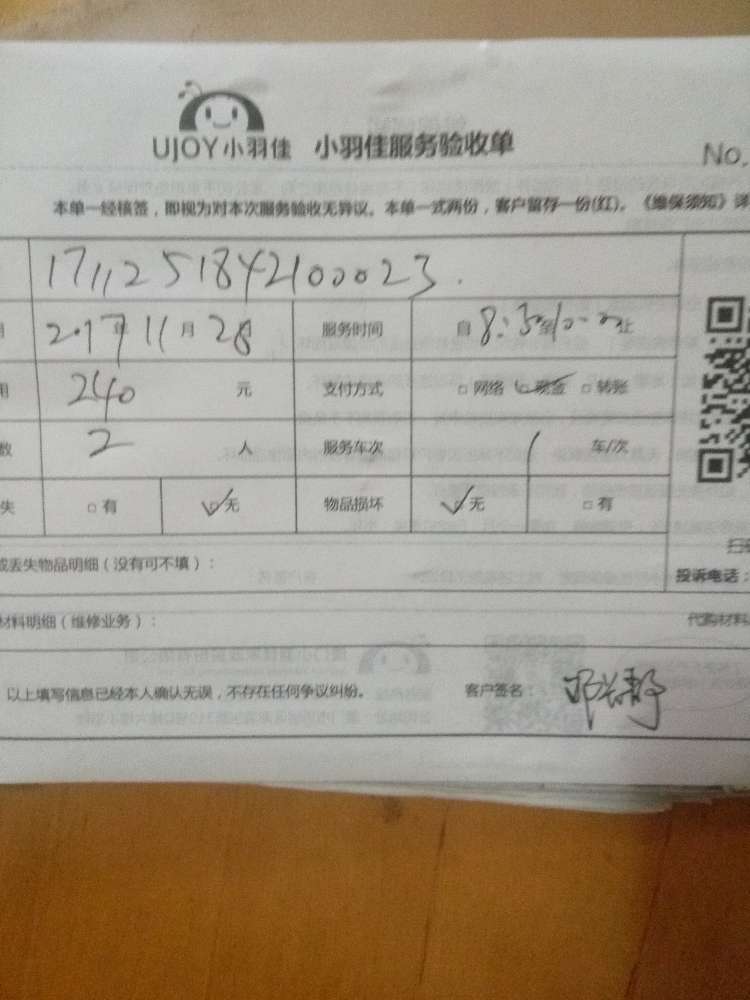 UJOY小羽佳 小羽佳服务验收单
No.
本单一经核签，即视为对本次服务验收无异议。本单一式两份，客户留存一份(红)。《维保须知》详
1711251842100023.
2017年11月28日 服务时间 自8:30至10:00止
用 240 元 支付方式 □网络 ☑现金 □转账
数 2 人 服务车次 1 车/次
失 □有 ☑无 物品损坏 ☑无 □有
扫
或丢失物品明细（没有可不填）： 投诉电话：
材料明细（维修业务）： 代购材料
以上填写信息已经本人确认无误，不存在任何争议纠纷。 客户签名：